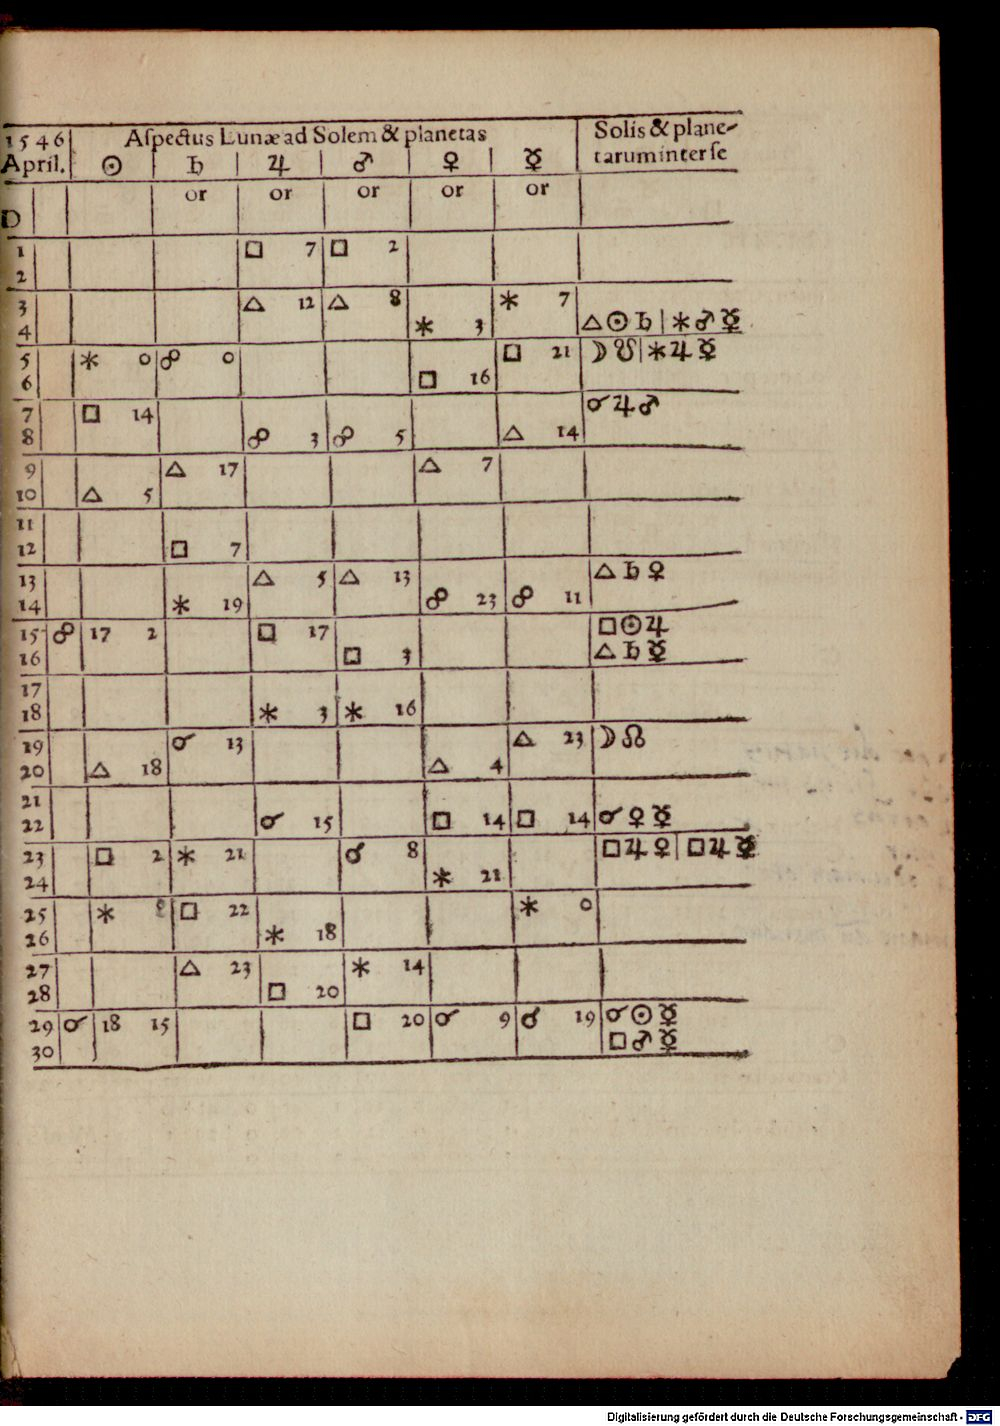 1546 Aſpectus Lunæ ad Solem & planetas Solis & plane-
April. ☉ ♄ ♃ ♂ ♀ ☿ tarum inter ſe
D or or or or or
1 □ 7 □ 2
2
3 △ 12 △ 8 ⚹ 7
4 ⚹ 3 △ ☉ ♄ | ⚹ ♂ ☿
5 ⚹ 0 ☍ 0 □ 21 ☽ ☋ | ⚹ ♃ ☿
6 □ 16
7 □ 14 ☌ ♃ ♂
8 ☍ 3 ☍ 5 △ 14
9 △ 17 △ 7
10 △ 5
11
12 □ 7
13 △ 5 △ 13 △ ♄ ♀
14 ⚹ 19 ☍ 23 ☍ 11
15 ☍ 17 2 □ 17 □ ☉ ♃
16 □ 3 △ ♄ ☿
17
18 ⚹ 3 ⚹ 16
19 ☌ 13 △ 23 ☽ ☊
20 △ 18 △ 4
21
22 ☌ 15 □ 14 □ 14 ☌ ♀ ☿
23 □ 2 ⚹ 21 ☌ 8 □ ♃ ♀ | □ ♃ ☿
24 ⚹ 21
25 ⚹ □ 22 ⚹ 0
26 ⚹ 18
27 △ 23 ⚹ 14
28 □ 20
29 ☌ 18 15 □ 20 ☌ 9 ☌ 19 ☌ ☉ ☿
30 □ ♂ ☿
Digitalisierung gefördert durch die Deutsche Forschungsgemeinschaft - DFG